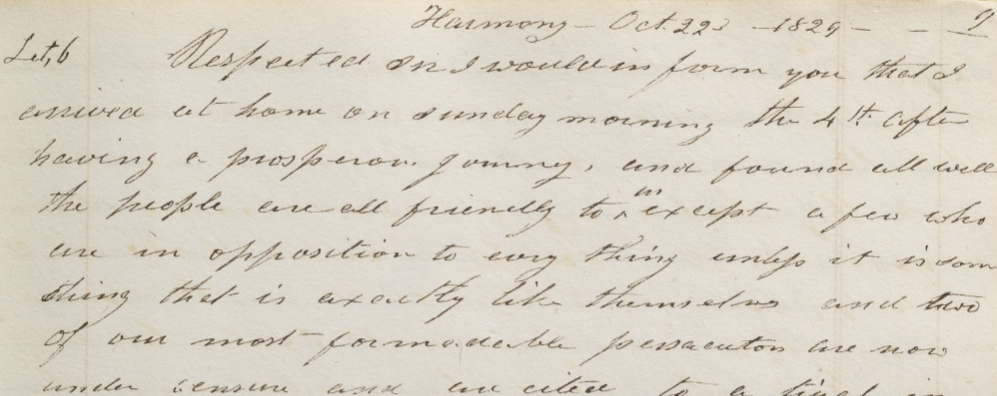 Harmony – Oct. 22d – 1829 – – 9
Let, 6 Respected Sir I would in form you that I
arrived at home on sunday morning the 4th. after
having a prosperous journy, and found all well
the people are all friendly to me except a few who
are in opposition to evry thing unless it is som
thing that is exactly like themselves and two
of our most formadable persacutors are now
under censure and are cited to a tryal in